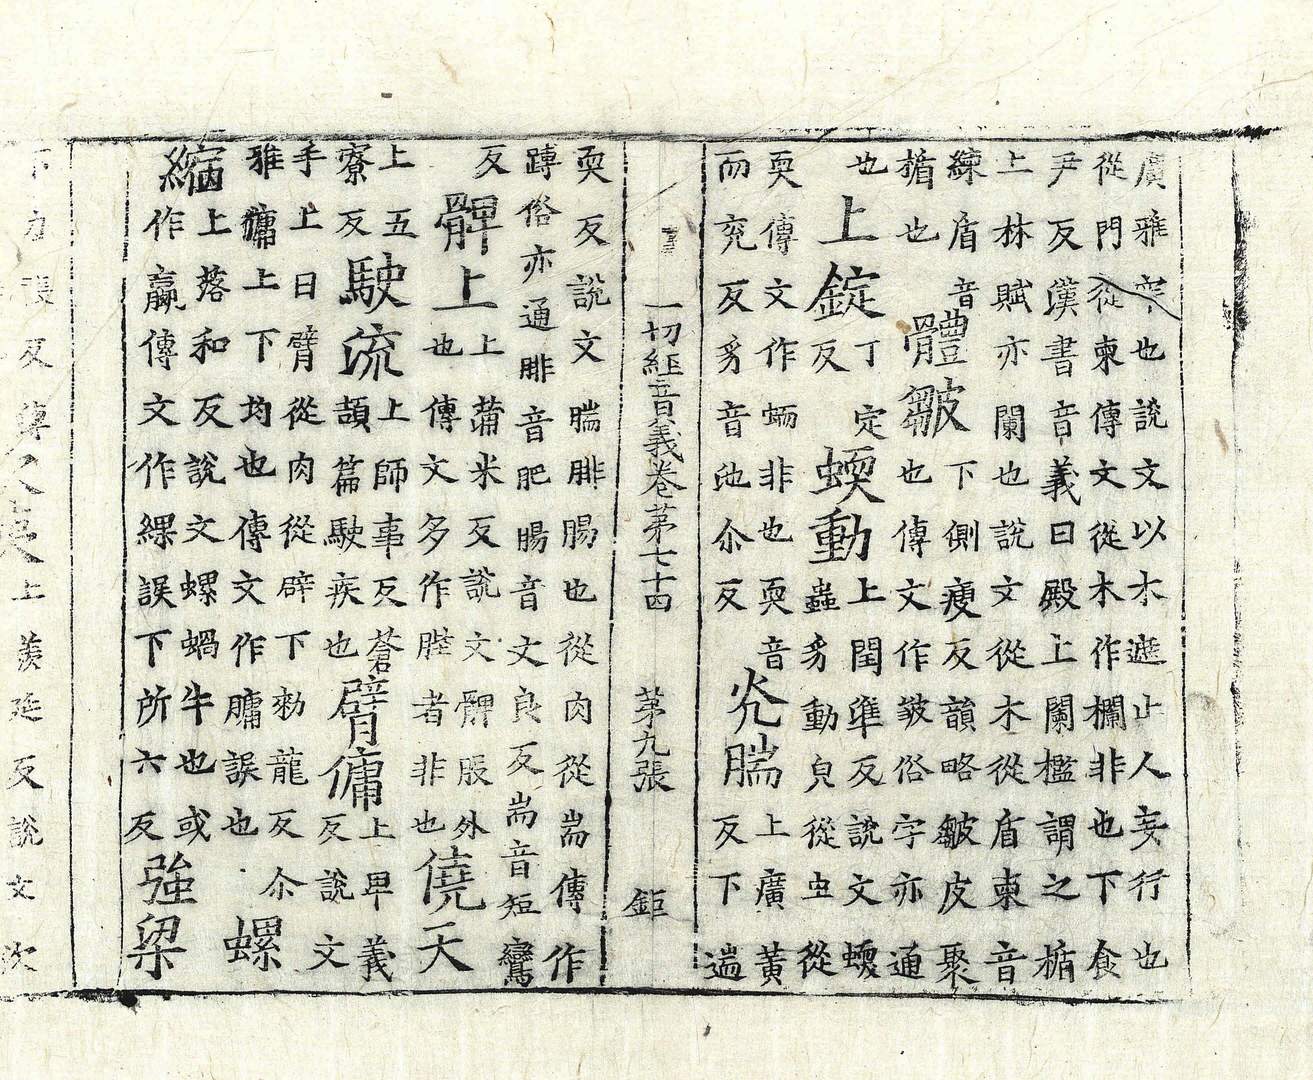 廣雅牢也說文以木遮止人妄行也
從門從柬傳文從木作欄非也下食
尹反漢書音義曰殿上闌檻謂之楯
上林賦亦闌也說文從木從盾柬音
練盾音
楯也
體皺
下側瘦反韻略皺皮聚
也傳文作皱俗字亦通
也
上錠
丁定
反
蝡動
上閏準反說文蝡
蟲豸動皃從虫從
耎傳文作蝒非也耎音
而兖反豸音池尒反
尣腨
上廣黃
反下遄
一切經音義卷苐七十四 苐九張 鉅
耎反說文腨腓腸也從肉從耑傳作
蹲俗亦通腓音肥腸音丈良反耑音短鸞
反
髀上
上蒲米反說文髀股外
也傳文多作䏶者非也
僥天
上五
寮反
駛流
上師事反蒼
頡篇駛疾也
臂傭
上卑義
反說文
手上曰臂從肉從辟下勑龍反尒
雅傭上下均也傳文作𦟛誤也
螺
縮
上落和反說文螺蝸牛也或
作蠃傳文作緤誤下所六反
強梁
下力張反傳文
上羨延反說文次